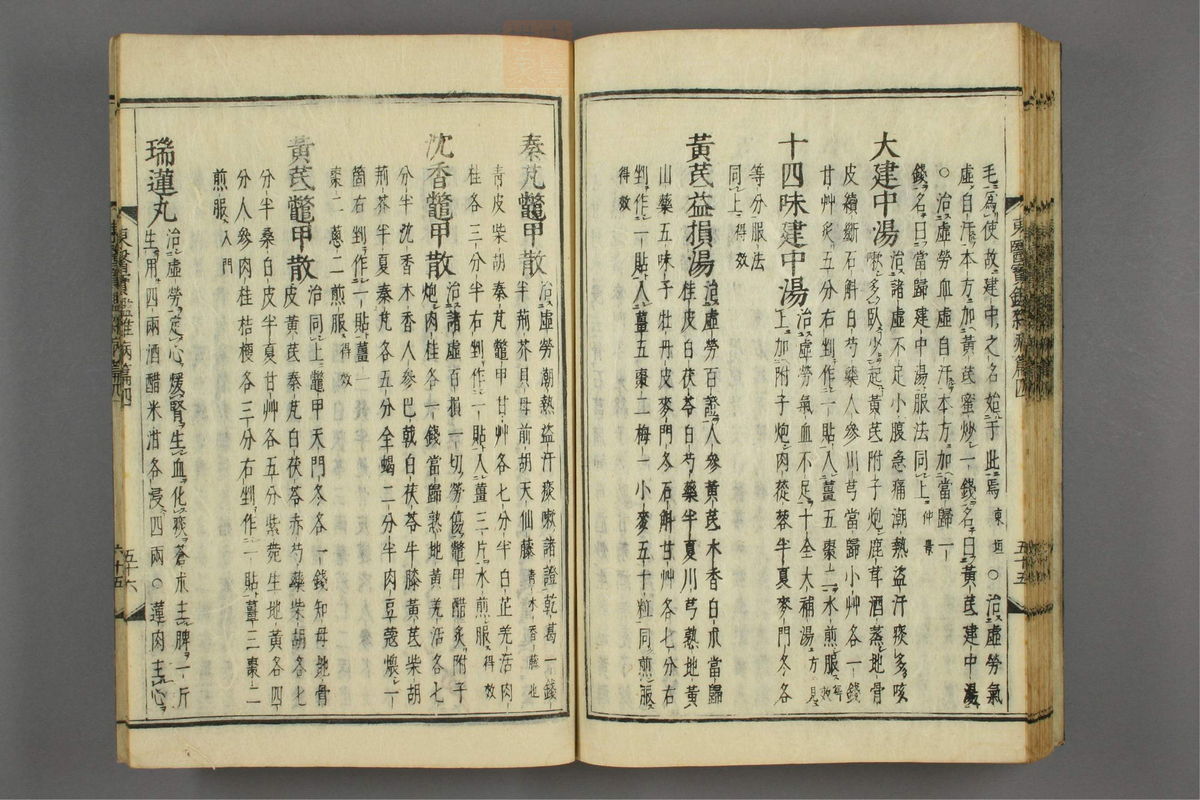 毛爲使故建中之名始于此焉東垣○治虛勞氣
虛自汗本方加黃芪蜜炒一錢名曰黃芪建中湯
○治虛勞血虛自汗本方加當歸一
錢名曰當歸建中湯服法同上仲景
大建中湯治諸虛不足小腹急痛潮熱盜汗痰多咳
嗽多臥少起黃芪附子炮鹿茸酒蒸地骨
皮續斷石斛白芍藥人參川芎當歸小艸各一錢
甘艸炙五分右剉作一貼入薑五棗二水煎服得效
十四味建中湯治虛勞氣血不足十全大補湯方見
上加附子炮肉蓯蓉半夏麥門冬各
等分服法
同上得效
黃芪益損湯治虛勞百證人參黃芪木香白朮當歸
桂皮白茯苓白芍藥半夏川芎熟地黃
山藥五味子牡丹皮麥門冬石斛甘艸各七分右
剉作一貼入薑五棗二梅一小麥五十粒同煎服
得效
東醫寶鑑雜病篇四
五十五
秦芃鼈甲散治虛勞潮熱盜汗痰嗽諸證乾葛一錢
半荊芥貝母前胡天仙藤靑木香藤也
靑皮柴胡秦芃鼈甲甘艸各七分半白芷羌活肉
桂各三分半右剉作一貼入薑三片水煎服得效
沈香鼈甲散治諸虛百損一切勞傷鼈甲醋炙附子
炮肉桂各一錢當歸熟地黃羌活各七
分半沈香木香人參巴戟白茯苓牛膝黃芪柴胡
荊芥半夏秦芃各五分全蝎二分半肉豆蔲煨一
箇右剉作一貼薑一
棗二葱二煎服得效
黃芪鼈甲散治同上鼈甲天門冬各一錢知母地骨
皮黃芪秦芃白茯苓赤芍藥柴胡各七
分半桑白皮半夏甘艸各五分紫菀生地黃各四
分人參肉桂桔梗各三分右剉作一貼薑三棗二
煎服入門
瑞蓮丸治虛勞定心煖腎生血化痰蒼朮主脾一斤
生用四兩酒醋米泔各浸四兩○蓮肉主心
東醫寶鑑雜病篇四
五十六
六十五